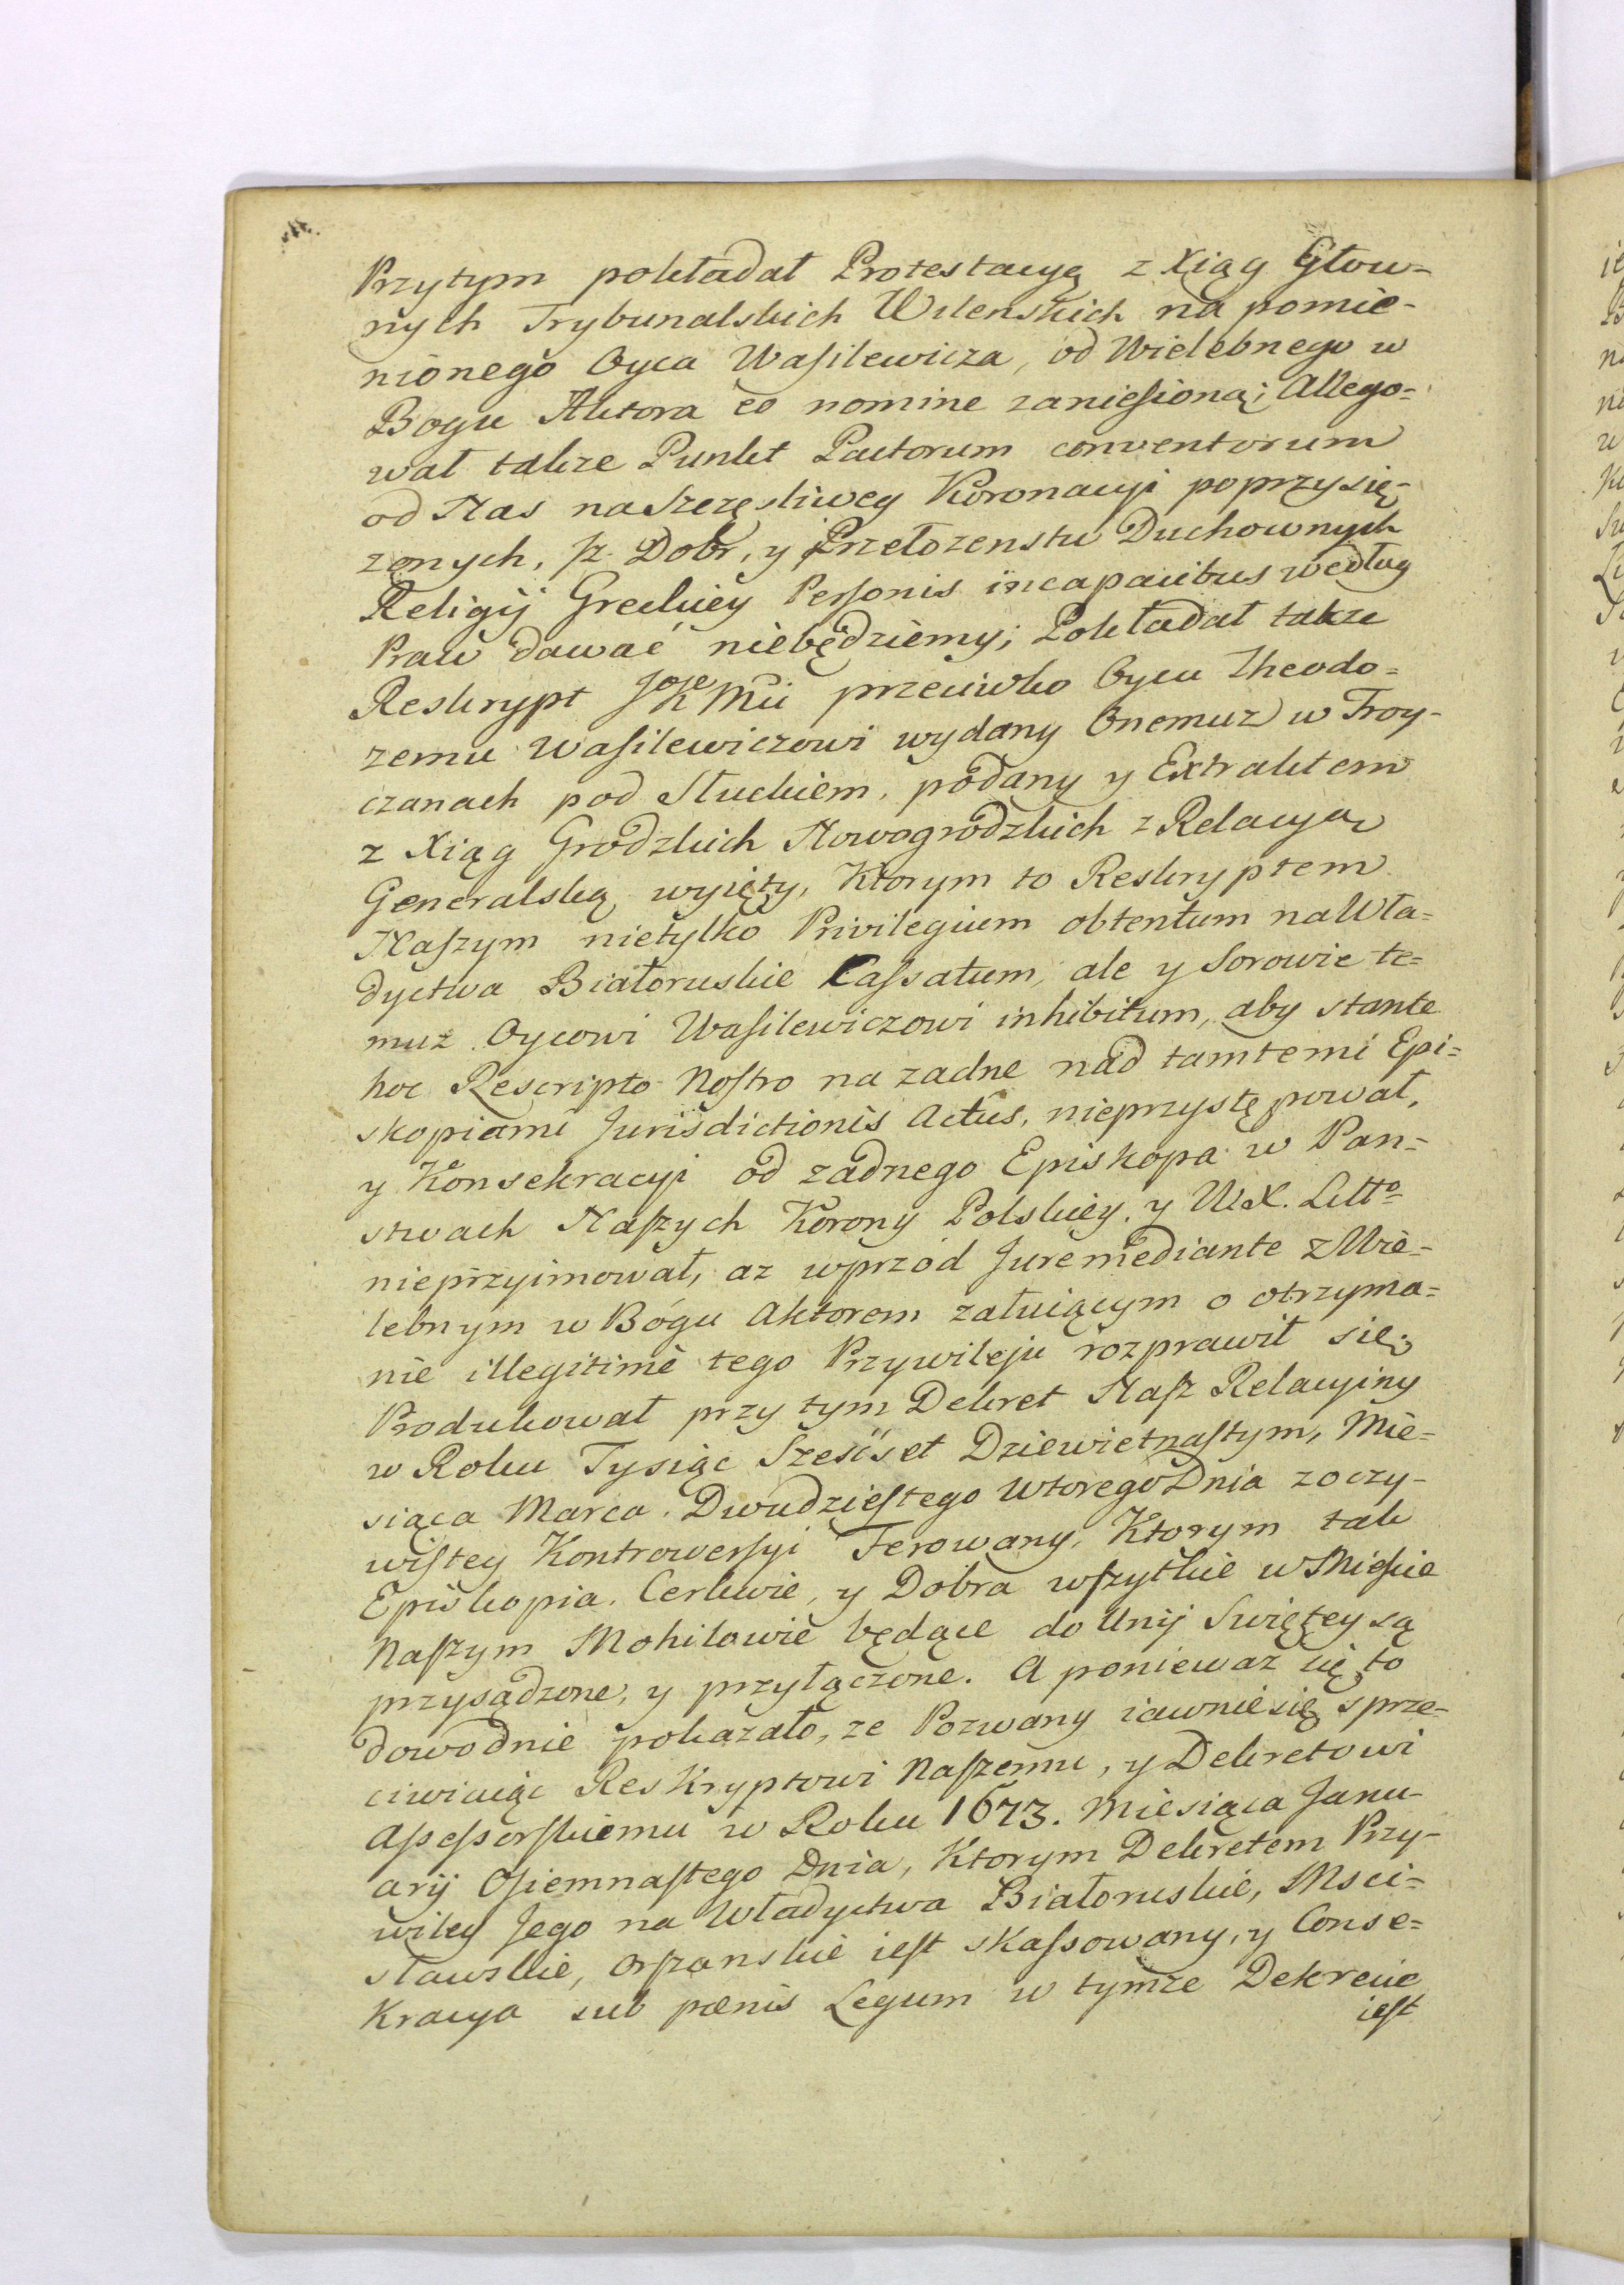 Przytym pokładał Protestacyą z Xiąg Głow=
nych Trybunalskich Wilenskich na pomie=
nionego Oyca Wasilewicza, od Wielebnego w
Bogu Aktora eo nomine zaniesioną; Allego=
wał także Punkt Pactorum conventorum
od Nas na Szczęsliwey Koronacyi poprzysię=
zonych, Dobr, y Przełozenstw Duchownych
Religij Greckiey Personis incapacibus według
Praw dawać niebędziemy; Pokładał także
Reskrypt JgoKMci przeciwko Oycu Theodo=
zemu Wasilewiczowi wydany Onemuz w Troy=
czanach pod Słuckiem, podany y Extraktem
z Xiąg Grodzkich Nowogrodzkich z Relacyą
Generalską wyięty, Ktorym to Reskryptem
Naszym nietylko Privilegium obtentum na Wła=
dyctwa Białoruskie Cassatum, ale y Sorowie te=
muz Oycowi Wasilewiczowi inhibitum, aby stante
hoc Rescripto Nostro na zadne nad tamtemi Epi=
skopiami Jurisdictionis Actus, nieprzystępował,
y Konsekracyi od zadnego Episkopa w Pan=
stwach Naszych Korony Polskiey, y W.X. Litto
nieprzyimował, az wprzód Jure mediante z Wie=
lebnym w Bógu Aktorem załuiącym o otrzyma=
nie illegitimè tego Przywileju rozprawił się;
Produkował przy tym Dekret Nasz Relacyiny
w Roku Tysiąc Szescset Dziewietnastym, Mie=
siąca Marca Dwudziestego Wtorego Dnia zoczy=
wistey Kontrowersyi Ferowany, Ktorym tak
Episkopia. Cerkwie, y Dobra wszytkie w Miescie
Naszym Mohilowie będące do Unij Swiętey są
przysądzone, y przyłączone. A poniewaz się to
dowodnie pokazało, ze Pozwany iawnie się sprze=
ciwiaiąc Reskryptowi Naszemu, y Dekretowi
Assessorskiemu w Roku 1673. Miesiąca Janu=
arij Osiemnastego Dnia, Ktorym Dekretem Przy=
wiley Jego na Władyctwa Białoruskie, Msci=
sławskie, Orszanskie iest skassowany, y Conse=
Kracya sub pœnis Legum w tymze Dekrecie
iest